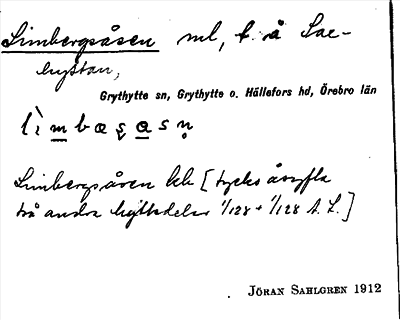 Limbergsåsen ml, t. å Sae-
hyttan,
Grythytte sn, Grythytte o. Hällefors hd, Örebro län
lìmbæşasn̥
Limbergsåsen hk [tycks åsyfta
två andra hyttedelar 1/128 + 1/128 A. L.]
JÖRAN SAHLGREN 1912